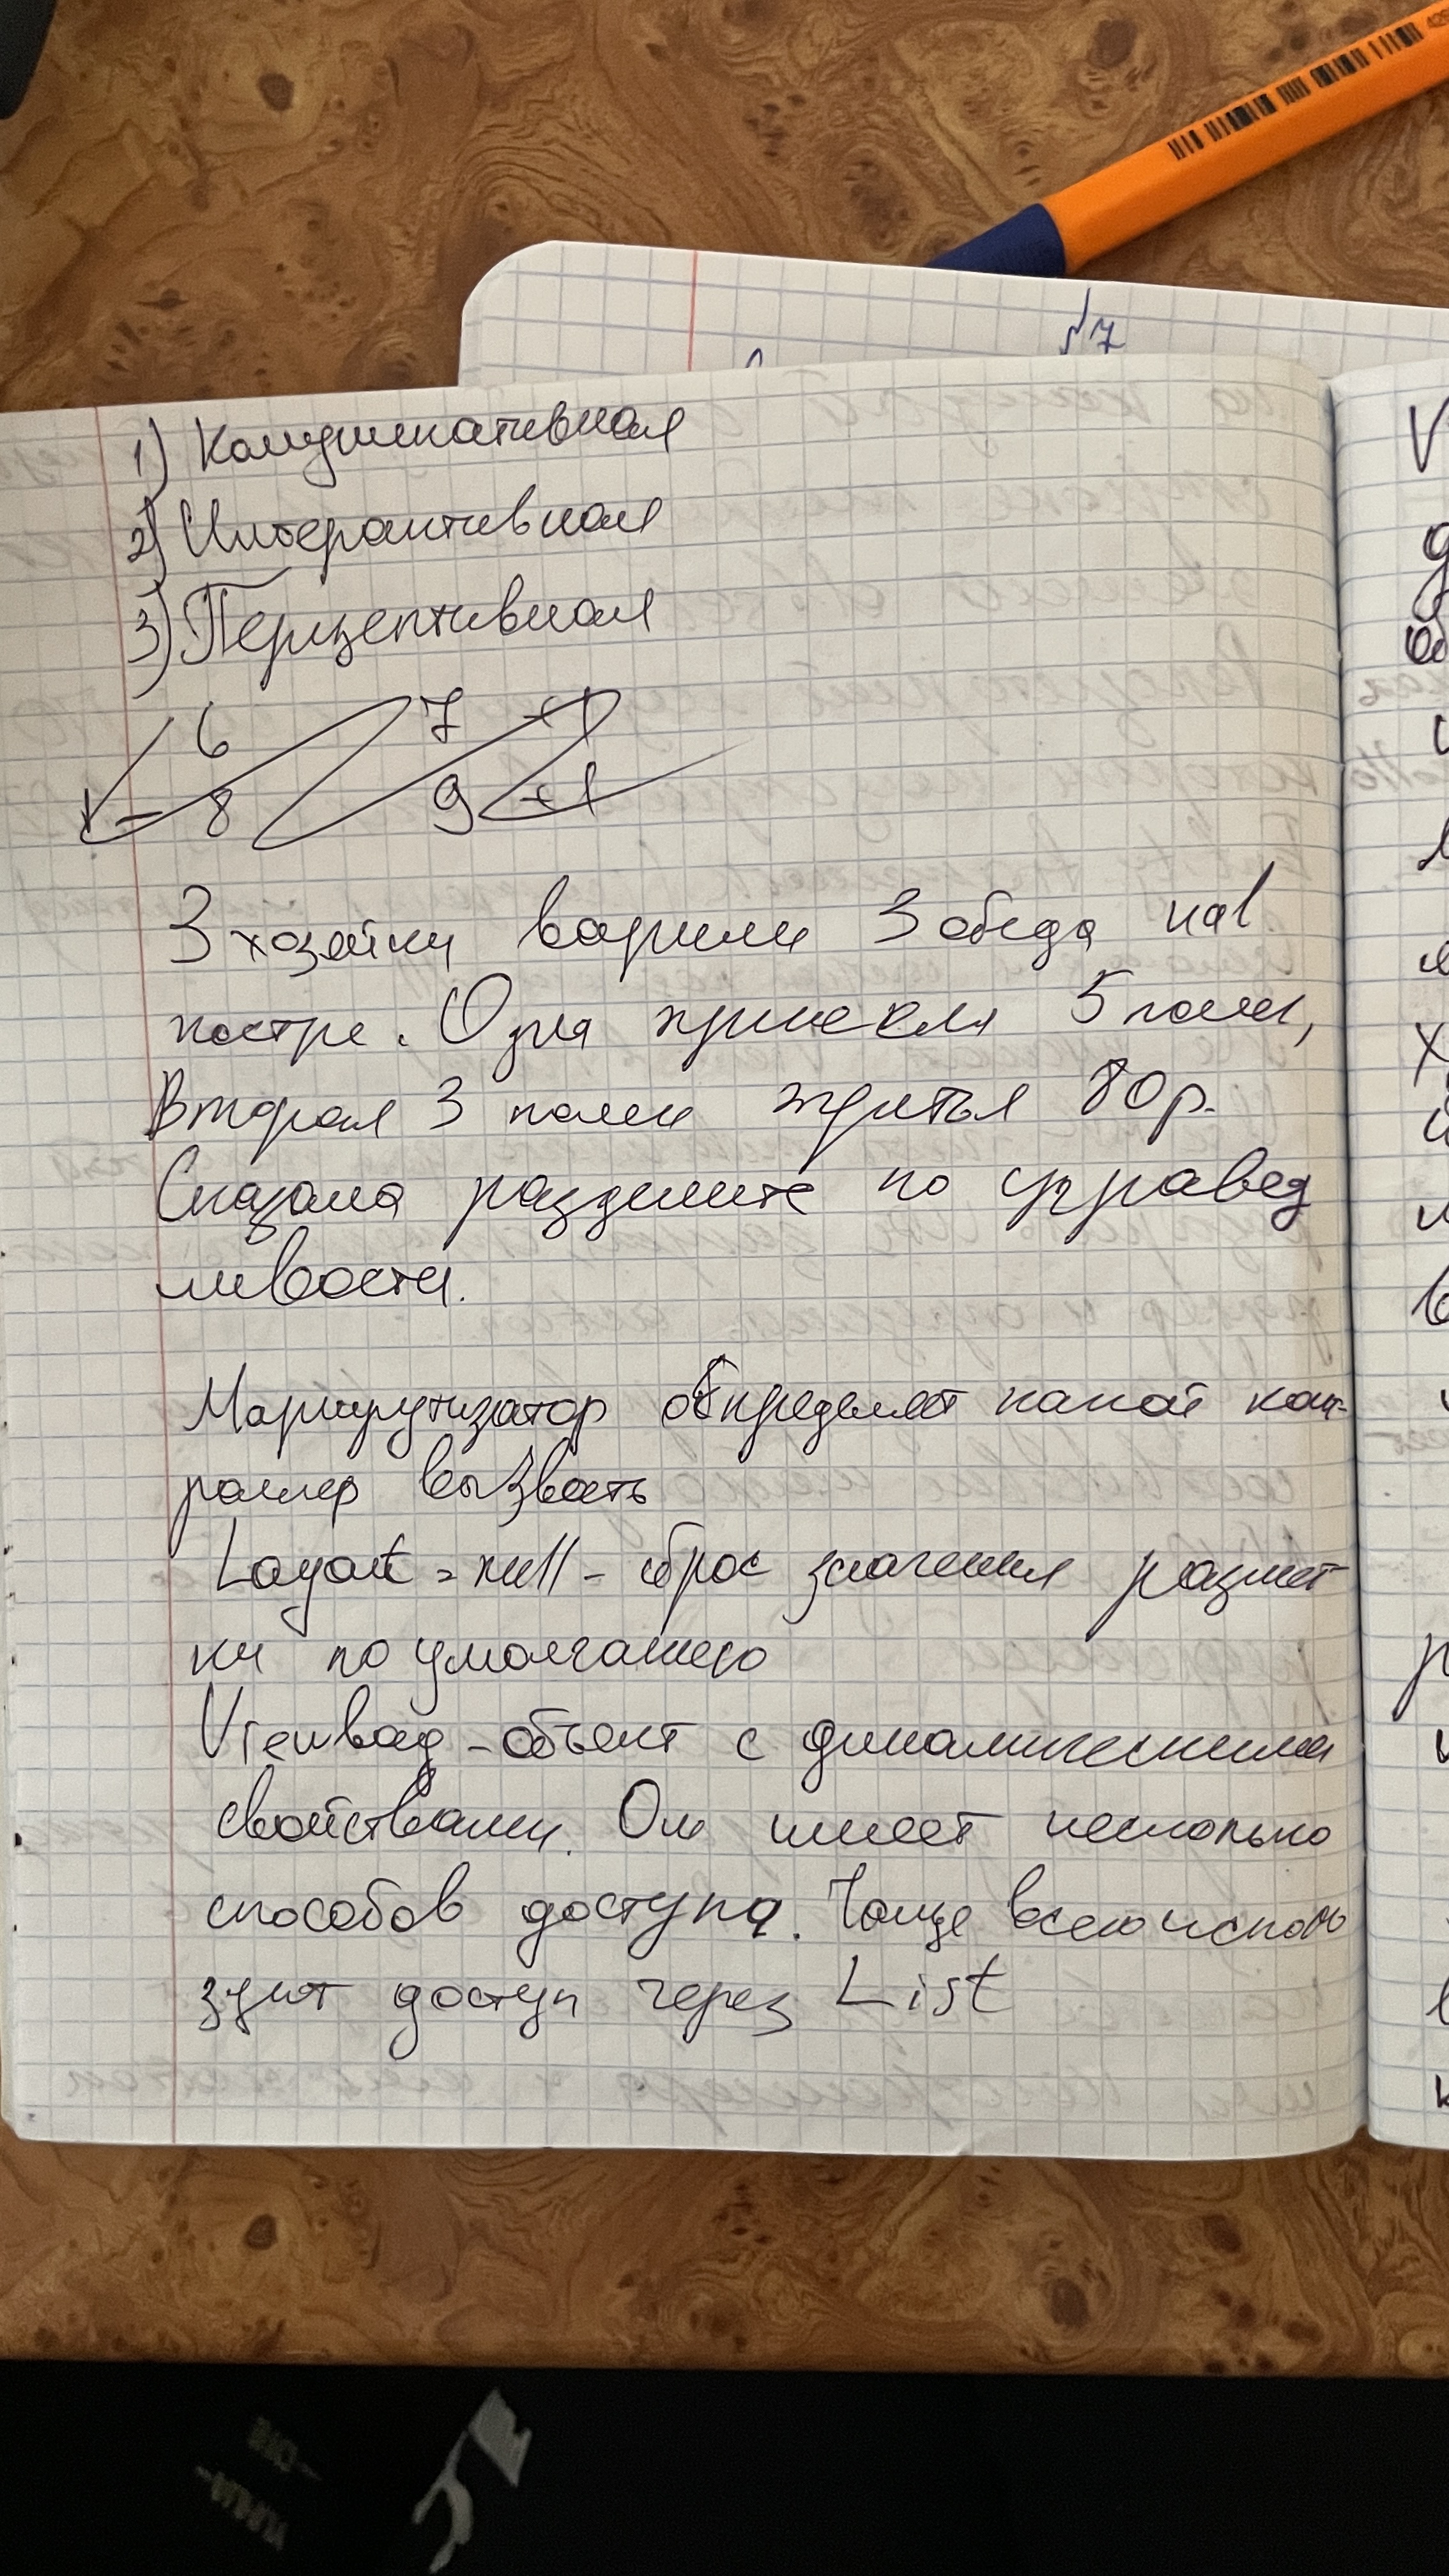 №7
1) Комуникативная
2) Интерактивная
3) Перцептивная
6 7 +1
- 8 9 +1
3 хозяйки варили 3 обеда на 1
костре. Одна принесла 5 полен,
Вторая 3 полен третья 80р.
Сказала разделите по справед
ливости.
Маршрутизатор определяет какой кон-
роллер вызвать
Layout = null - сброс значения размет
ки по умолчанию
Viewbag - объект с динамическими
свойствами. Он имеет несколько
способов доступа. Чаще всего исполь
зуют доступ через List